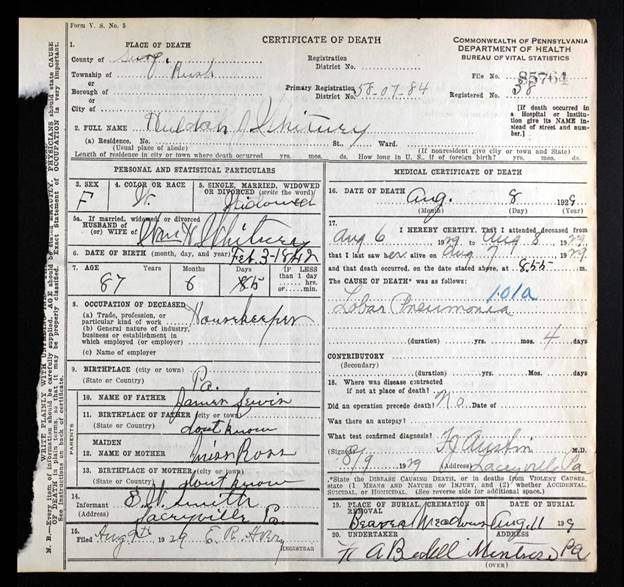 Form V. S. No. 5
CERTIFICATE OF DEATH
COMMONWEALTH OF PENNSYLVANIA
DEPARTMENT OF HEALTH
BUREAU OF VITAL STATISTICS
1. PLACE OF DEATH
County of Susq.
Township of Rush
Borough of
City of
Registration District No.
Primary Registration District No. 58-07-84
File No. 85764
Registered No. 38
[If death occurred in a Hospital or Institution give its NAME instead of street and number.]
2. FULL NAME Huldah Whitney
(a) Residence. No. St., Ward.
(Usual place of abode) (If nonresident give city or town and State)
Length of residence in city or town where death occurred yrs. mos. ds. How long in U. S., if of foreign birth? yrs. mos. ds.
PERSONAL AND STATISTICAL PARTICULARS
3. SEX F
4. COLOR OR RACE W.
5. SINGLE, MARRIED, WIDOWED OR DIVORCED (write the word) Widowed
5a. If married, widowed or divorced
HUSBAND of (or) WIFE of Whitney
6. DATE OF BIRTH (month, day, and year) Feb. 3-1842
7. AGE Years Months Days If LESS than 1 day hrs. or min.
87 6
8. OCCUPATION OF DECEASED
(a) Trade, profession, or particular kind of work Housekeeper
(b) General nature of industry, business or establishment in which employed (or employer)
(c) Name of employer
9. BIRTHPLACE (city or town) Pa.
(State or Country)
PARENTS
10. NAME OF FATHER James
11. BIRTHPLACE OF FATHER (city or town)
(State or Country) dont know
12. MAIDEN NAME OF MOTHER Miss Ross
13. BIRTHPLACE OF MOTHER (city or town)
(State or Country) dont know
14. Informant Smith
(Address) Laceyville Pa
15. Filed Aug 9th 1929
REGISTRAR
MEDICAL CERTIFICATE OF DEATH
16. DATE OF DEATH Aug. 8 1929
(Month) (Day) (Year)
17. I HEREBY CERTIFY, That I attended deceased from
Aug 6 1929 to Aug 8 1929
that I last saw her alive on Aug 7 1929
and that death occurred, on the date stated above, at 8.55 m.
The CAUSE OF DEATH* was as follows:
101a
Lobar Pneumonia
(duration) yrs. mos. 4 ds.
CONTRIBUTORY
(Secondary)
(duration) yrs. mos. ds.
18. Where was disease contracted
if not at place of death?
Did an operation precede death? No. Date of
Was there an autopsy?
What test confirmed diagnosis?
(Signed) Austin M.D.
8/9 1929 (Address) Laceyville Pa
*State the DISEASE CAUSING DEATH, or in deaths from VIOLENT CAUSES, state (1) MEANS AND NATURE OF INJURY, and (2) whether ACCIDENTAL, SUICIDAL, or HOMICIDAL. (See reverse side for additional space).
19. PLACE OF BURIAL, CREMATION OR REMOVAL DATE OF BURIAL
Aug. 11 1929
20. UNDERTAKER ADDRESS
A Bedell Montrose PA
(OVER)